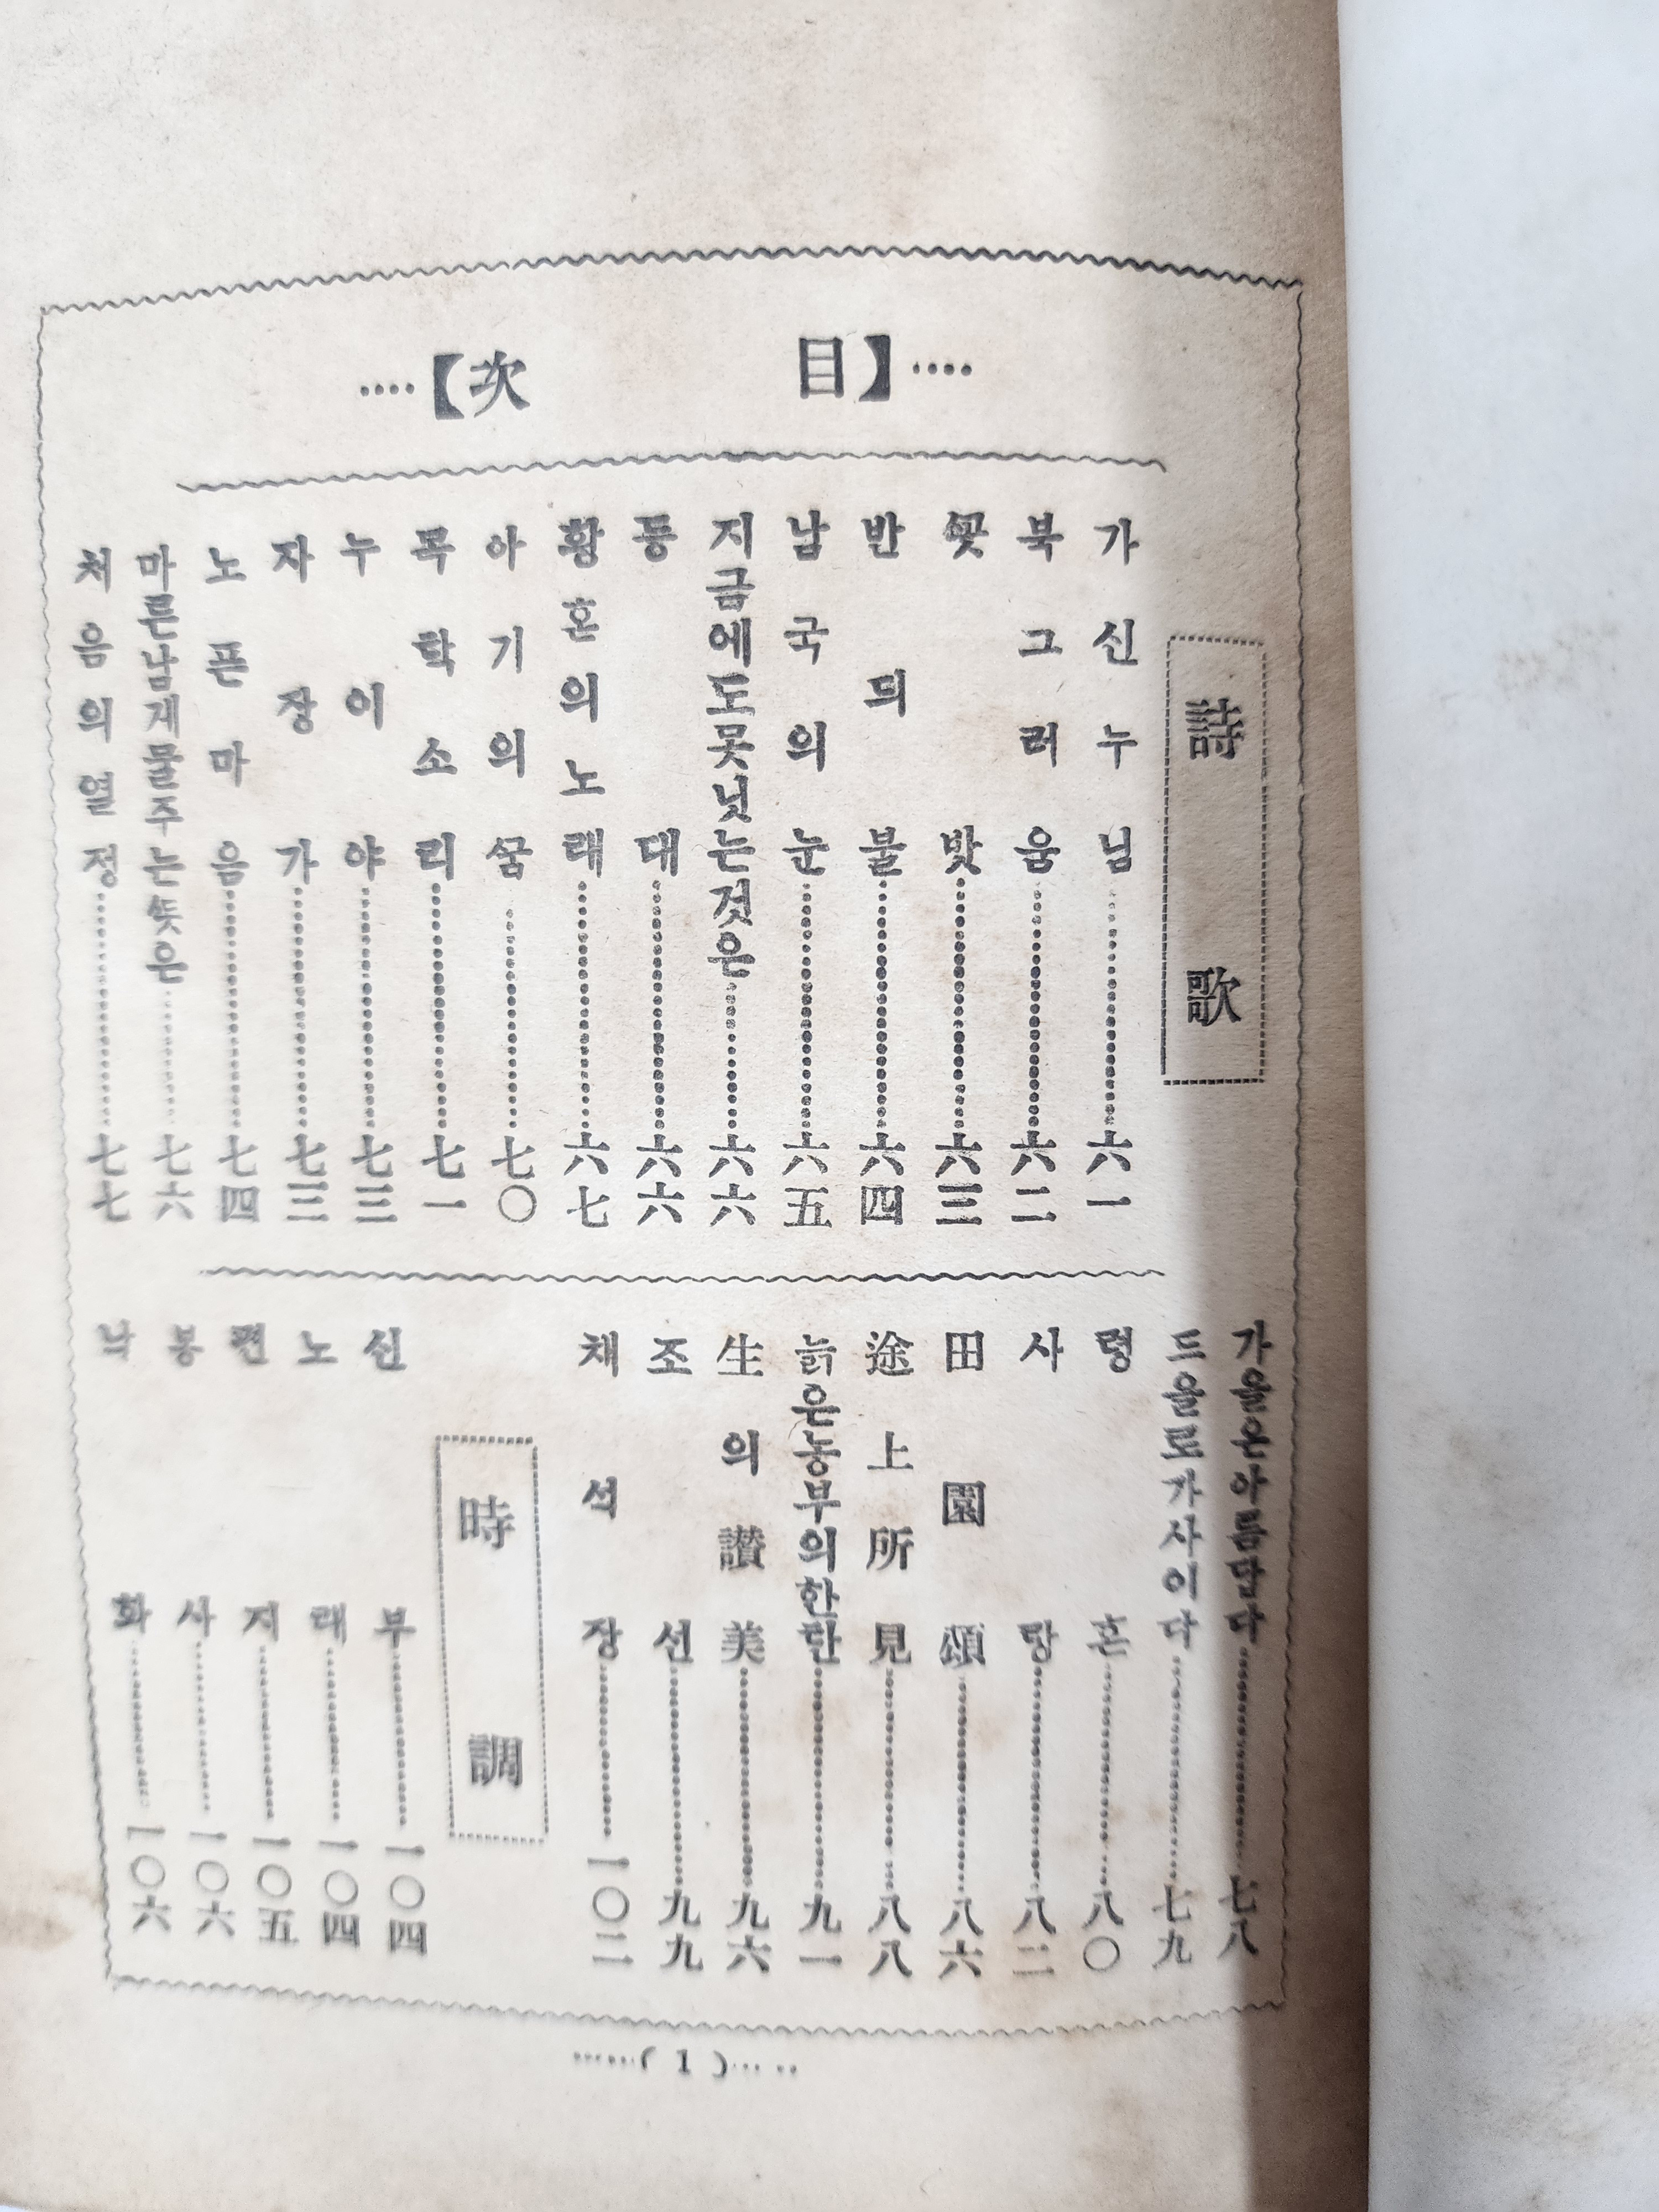 ····【次 目】····
詩歌
가신누님……六一
북그러움……六二
꼿밧……六三
반듸불……六四
남국의눈……六五
지금에도못닛는것은……六六
등대……六六
황혼의노래……六七
아기의꿈……七〇
목탁소리……七一
누이야……七三
자장가……七三
노픈마음……七四
마른남게물주는뜻은……七六
처음의열정……七七
가을은아름답다……七八
드을로가사이다……七九
령혼……八〇
사랑……八二
田園頌……八六
途上所見……八八
늙은농부의한탄……九一
生의讃美……九六
조선……九九
채석장……一〇二
時調
신부……一〇四
노래……一〇四
편지……一〇五
봉사……一〇六
낙화……一〇六
……( 1 )……